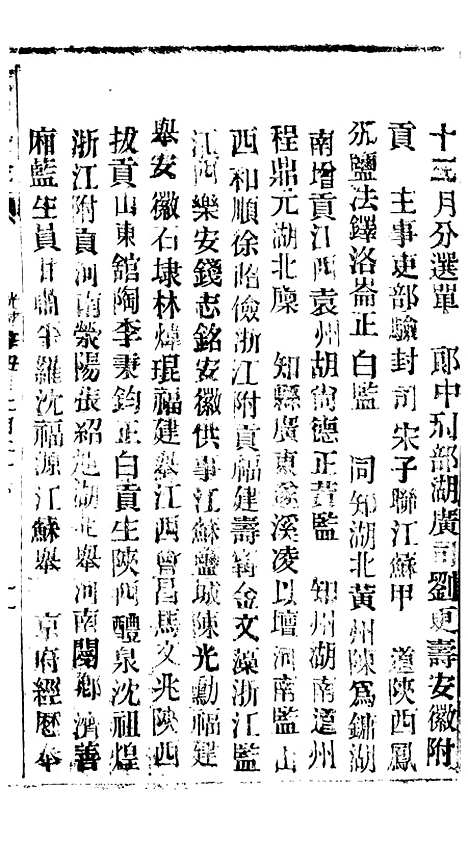 十二月分選單　郎中刑部湖廣司劉更壽安徽附
貢　主事吏部驗封司宋子聯江蘇甲　道陝西鳳
邠鹽法鐸洛崙正白監　同知湖北黃州陳為鏞湖
南增貢江西袁州胡德正黃監　知州湖南道州
程鼎元湖北廩　知縣廣東遂溪凌以壇河南監山
西和順徐貽儉浙江附貢福建壽寧金文藻浙江監
江西樂安錢志銘安徽供事江蘇鹽城陳光勳福建
舉安徽石埭林煒琨福建舉江西會昌馬文兆陝西
拔貢山東舘陶李秉鈞正白貢生陝西醴泉沈祖煌
浙江附貢河南滎陽張紹湖北舉河南閿鄉濟善
廂藍生員甘肅平羅沈福源江蘇舉　京府經歷奉